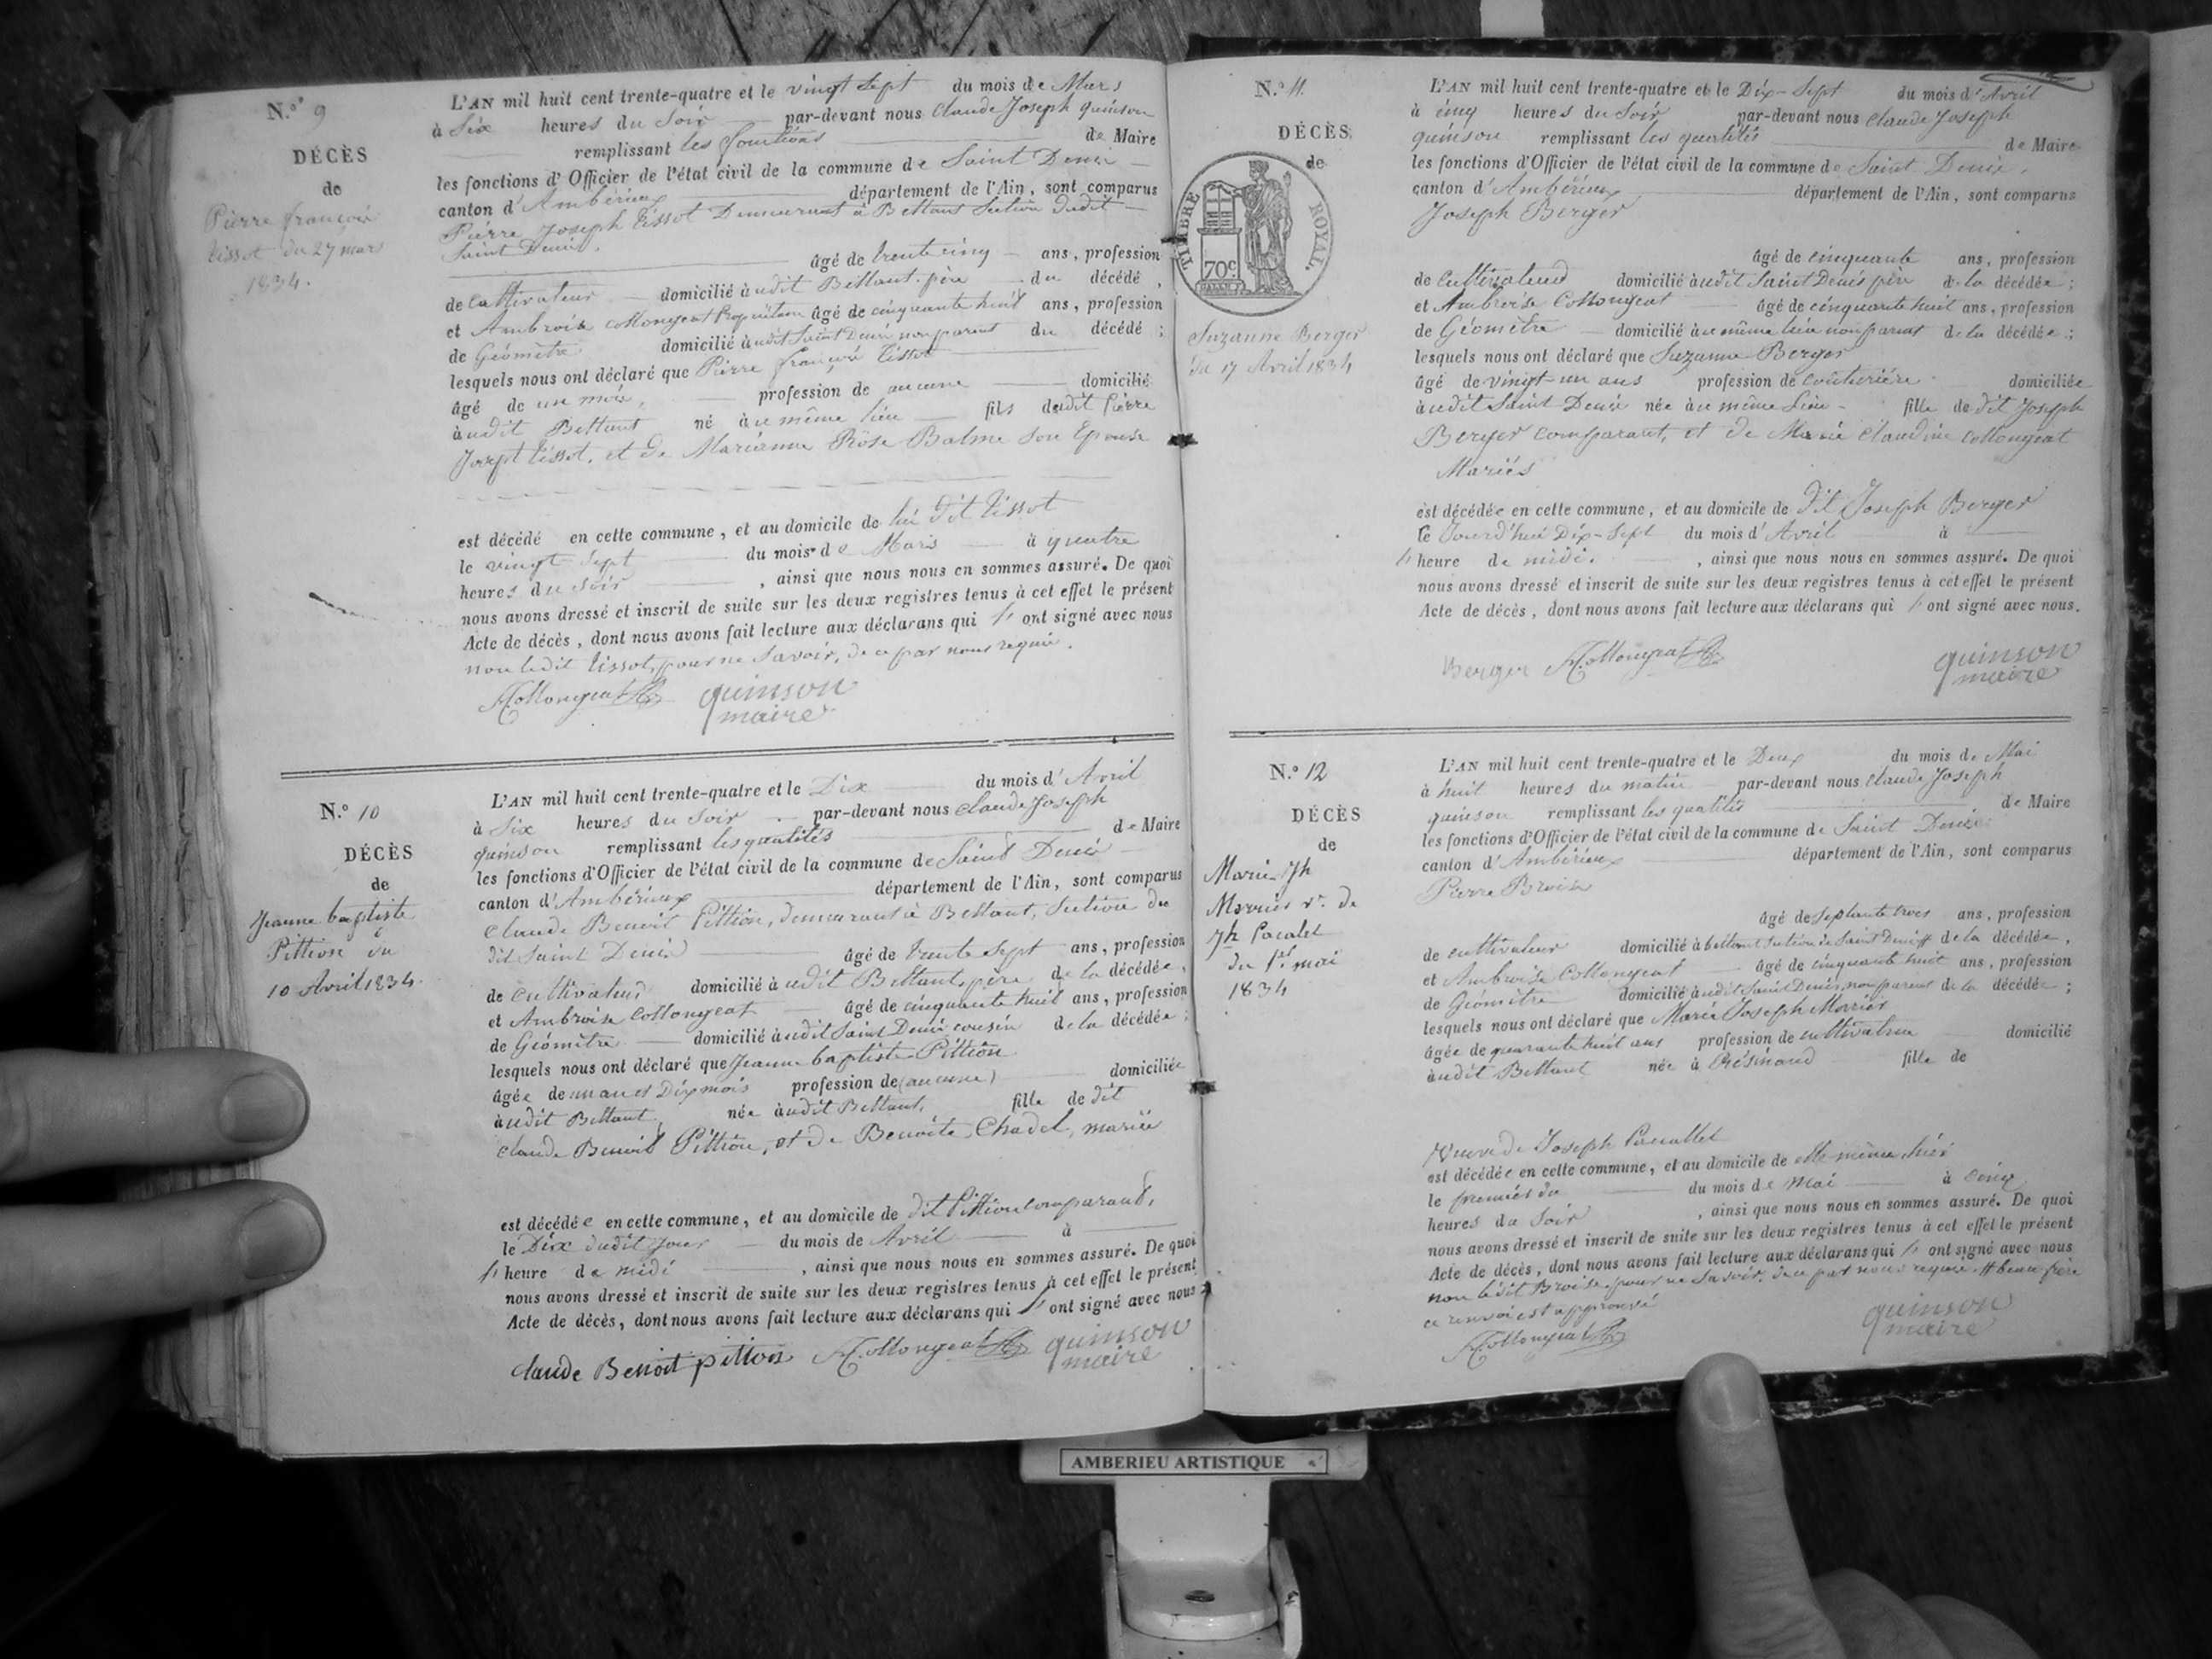 N.° 9
DÉCÈS
de
Pierre françois
tissot du 27 mars
1834.
L'AN mil huit cent trente-quatre et le vingt sept du mois de Mars
à Six heures du Soir par-devant nous Claude Joseph quinson
remplissant les fonctions de Maire
les fonctions d'Officier de l'état civil de la commune de Saint Denis
canton d'Ambérieux département de l'Ain, sont comparus
Pierre Joseph tissot Demeurant à Bettant Section dudit
Saint Denis.
âgé de trente cinq ans, profession
de Cultivateur domicilié à udit Bettant. père du décédé,
et Ambroise Collongeat Propriétaire âgé de cinquante huit ans, profession
de Géomètre domicilié à udit Saint Denis non parent du décédé ;
lesquels nous ont déclaré que Pierre françois tissot
âgé de un mois, profession de aucune domicilié
à udit Bettant né à u même lieu fils dudit Pierre
Joseph tissot, et de Marianne Rose Balme Son Epouse
est décédé en cette commune, et au domicile de lui dit tissot
le vingt Sept du mois de Mars à quatre
heures du Soir, ainsi que nous nous en sommes assuré. De quoi
nous avons dressé et inscrit de suite sur les deux registres tenus à cet effet le présent
Acte de décès, dont nous avons fait lecture aux déclarans qui ont signé avec nous
non ledit tissot, pour ne Savoir, de ce par nous requis.
A. Collongeat quinson
maire
N.° 10
DÉCÈS
de
Jeanne baptiste
Pittion du
10 Avril 1834.
L'AN mil huit cent trente-quatre et le Dix du mois d'Avril
à Six heures du Soir par-devant nous Claude Joseph
quinson remplissant les qualités de Maire
les fonctions d'Officier de l'état civil de la commune de Saint Denis
canton d'Ambérieux département de l'Ain, sont comparus
Claude Benoit Pittion, demeurant à Bettant, Section du
dit Saint Denis âgé de trente Sept ans, profession
de Cultivateur domicilié à udit Bettant, père de la décédée,
et Ambroise Collongeat âgé de cinquante huit ans, profession
de Géomètre domicilié à udit Saint Denis cousin de la décédée ;
lesquels nous ont déclaré que Jeanne baptiste Pittion
âgée de un an et Dix mois profession de (aucune) domiciliée
à udit Bettant, née à udit Bettant, fille de dit
Claude Benoit Pittion, et de Benoite Chadel, mariés
est décédée en cette commune, et au domicile de dit Pittion comparant,
le Dix dudit jour du mois de Avril à
heure de midi, ainsi que nous nous en sommes assuré. De quoi
nous avons dressé et inscrit de suite sur les deux registres tenus à cet effet le présent
Acte de décès, dont nous avons fait lecture aux déclarans qui ont signé avec nous
claude Benoit pittion A. Collongeat quinson
maire
N.° 11.
DÉCÈS
de
TIMBRE ROYAL.
70c
Suzanne Berger
du 17 Avril 1834
L'AN mil huit cent trente-quatre et le Dix-Sept du mois d'Avril
à cinq heures du Soir par-devant nous Claude Joseph
quinson remplissant les qualités de Maire
les fonctions d'Officier de l'état civil de la commune de Saint Denis,
canton d'Ambérieux département de l'Ain, sont comparus
Joseph Berger
âgé de cinquante ans, profession
de Cultivateur domicilié à udit Saint Denis père de la décédée ;
et Ambroise Collongeat âgé de cinquante huit ans, profession
de Géomètre domicilié à u même lieu non parent de la décédée ;
lesquels nous ont déclaré que Suzanne Berger
âgé de vingt-un ans profession de couturière domiciliée
à udit Saint Denis née à u même Lieu fille de dit Joseph
Berger comparant, et de Marie Claudine Collongeat
Mariés
est décédée en cette commune, et au domicile de dit Joseph Berger
le Jourd'hui Dix-Sept du mois d'Avril à
heure de midi., ainsi que nous nous en sommes assuré. De quoi
nous avons dressé et inscrit de suite sur les deux registres tenus à cet effet le présent
Acte de décès, dont nous avons fait lecture aux déclarans qui ont signé avec nous.
Berger A. Collongeat quinson
maire
N.° 12
DÉCÈS
de
Marie Jh
Morrier Ve. de
Jh Pacalet
du 1er mai
1834
L'AN mil huit cent trente-quatre et le Deux du mois de Mai
à huit heures du matin par-devant nous Claude Joseph
quinson remplissant les qualités de Maire
les fonctions d'Officier de l'état civil de la commune de Saint Denis
canton d'Ambérieux département de l'Ain, sont comparus
Pierre Broise
âgé de Septante trois ans, profession
de cultivateur domicilié à bettant Section de Saint Denis # de la décédée,
et Ambroise Collongeat âgé de cinquante huit ans, profession
de Géomètre domicilié à udit Saint Denis, non parent de la décédée ;
lesquels nous ont déclaré que Marie Joseph
âgée de quarante huit ans profession de domicilié
à udit Bettant née à fille de
Veuve de Joseph
est décédée en cette commune, et au domicile de elle même, hier
le premier du du mois de Mai à Cinq
heures du Soir, ainsi que nous nous en sommes assuré. De quoi
nous avons dressé et inscrit de suite sur les deux registres tenus à cet effet le présent
Acte de décès, dont nous avons fait lecture aux déclarans qui ont signé avec nous
non ledit Broise, pour ne Savoir, de ce par nous requis. # beau frère
ce renvoi est approuvé
A. Collongeat quinson
maire
AMBERIEU ARTISTIQUE